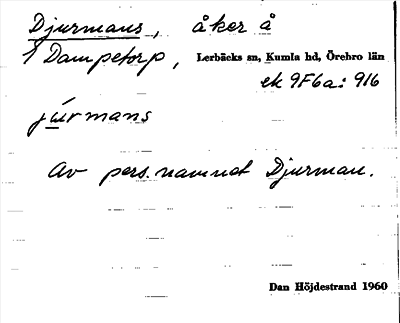 Djurmans, åker å
Dampetorp, Lerbäcks sn, Kumla hd, Örebro län
ek 9F6a: 916
júrmans
Av pers.namnet Djurman.
Dan Höjdestrand 1960